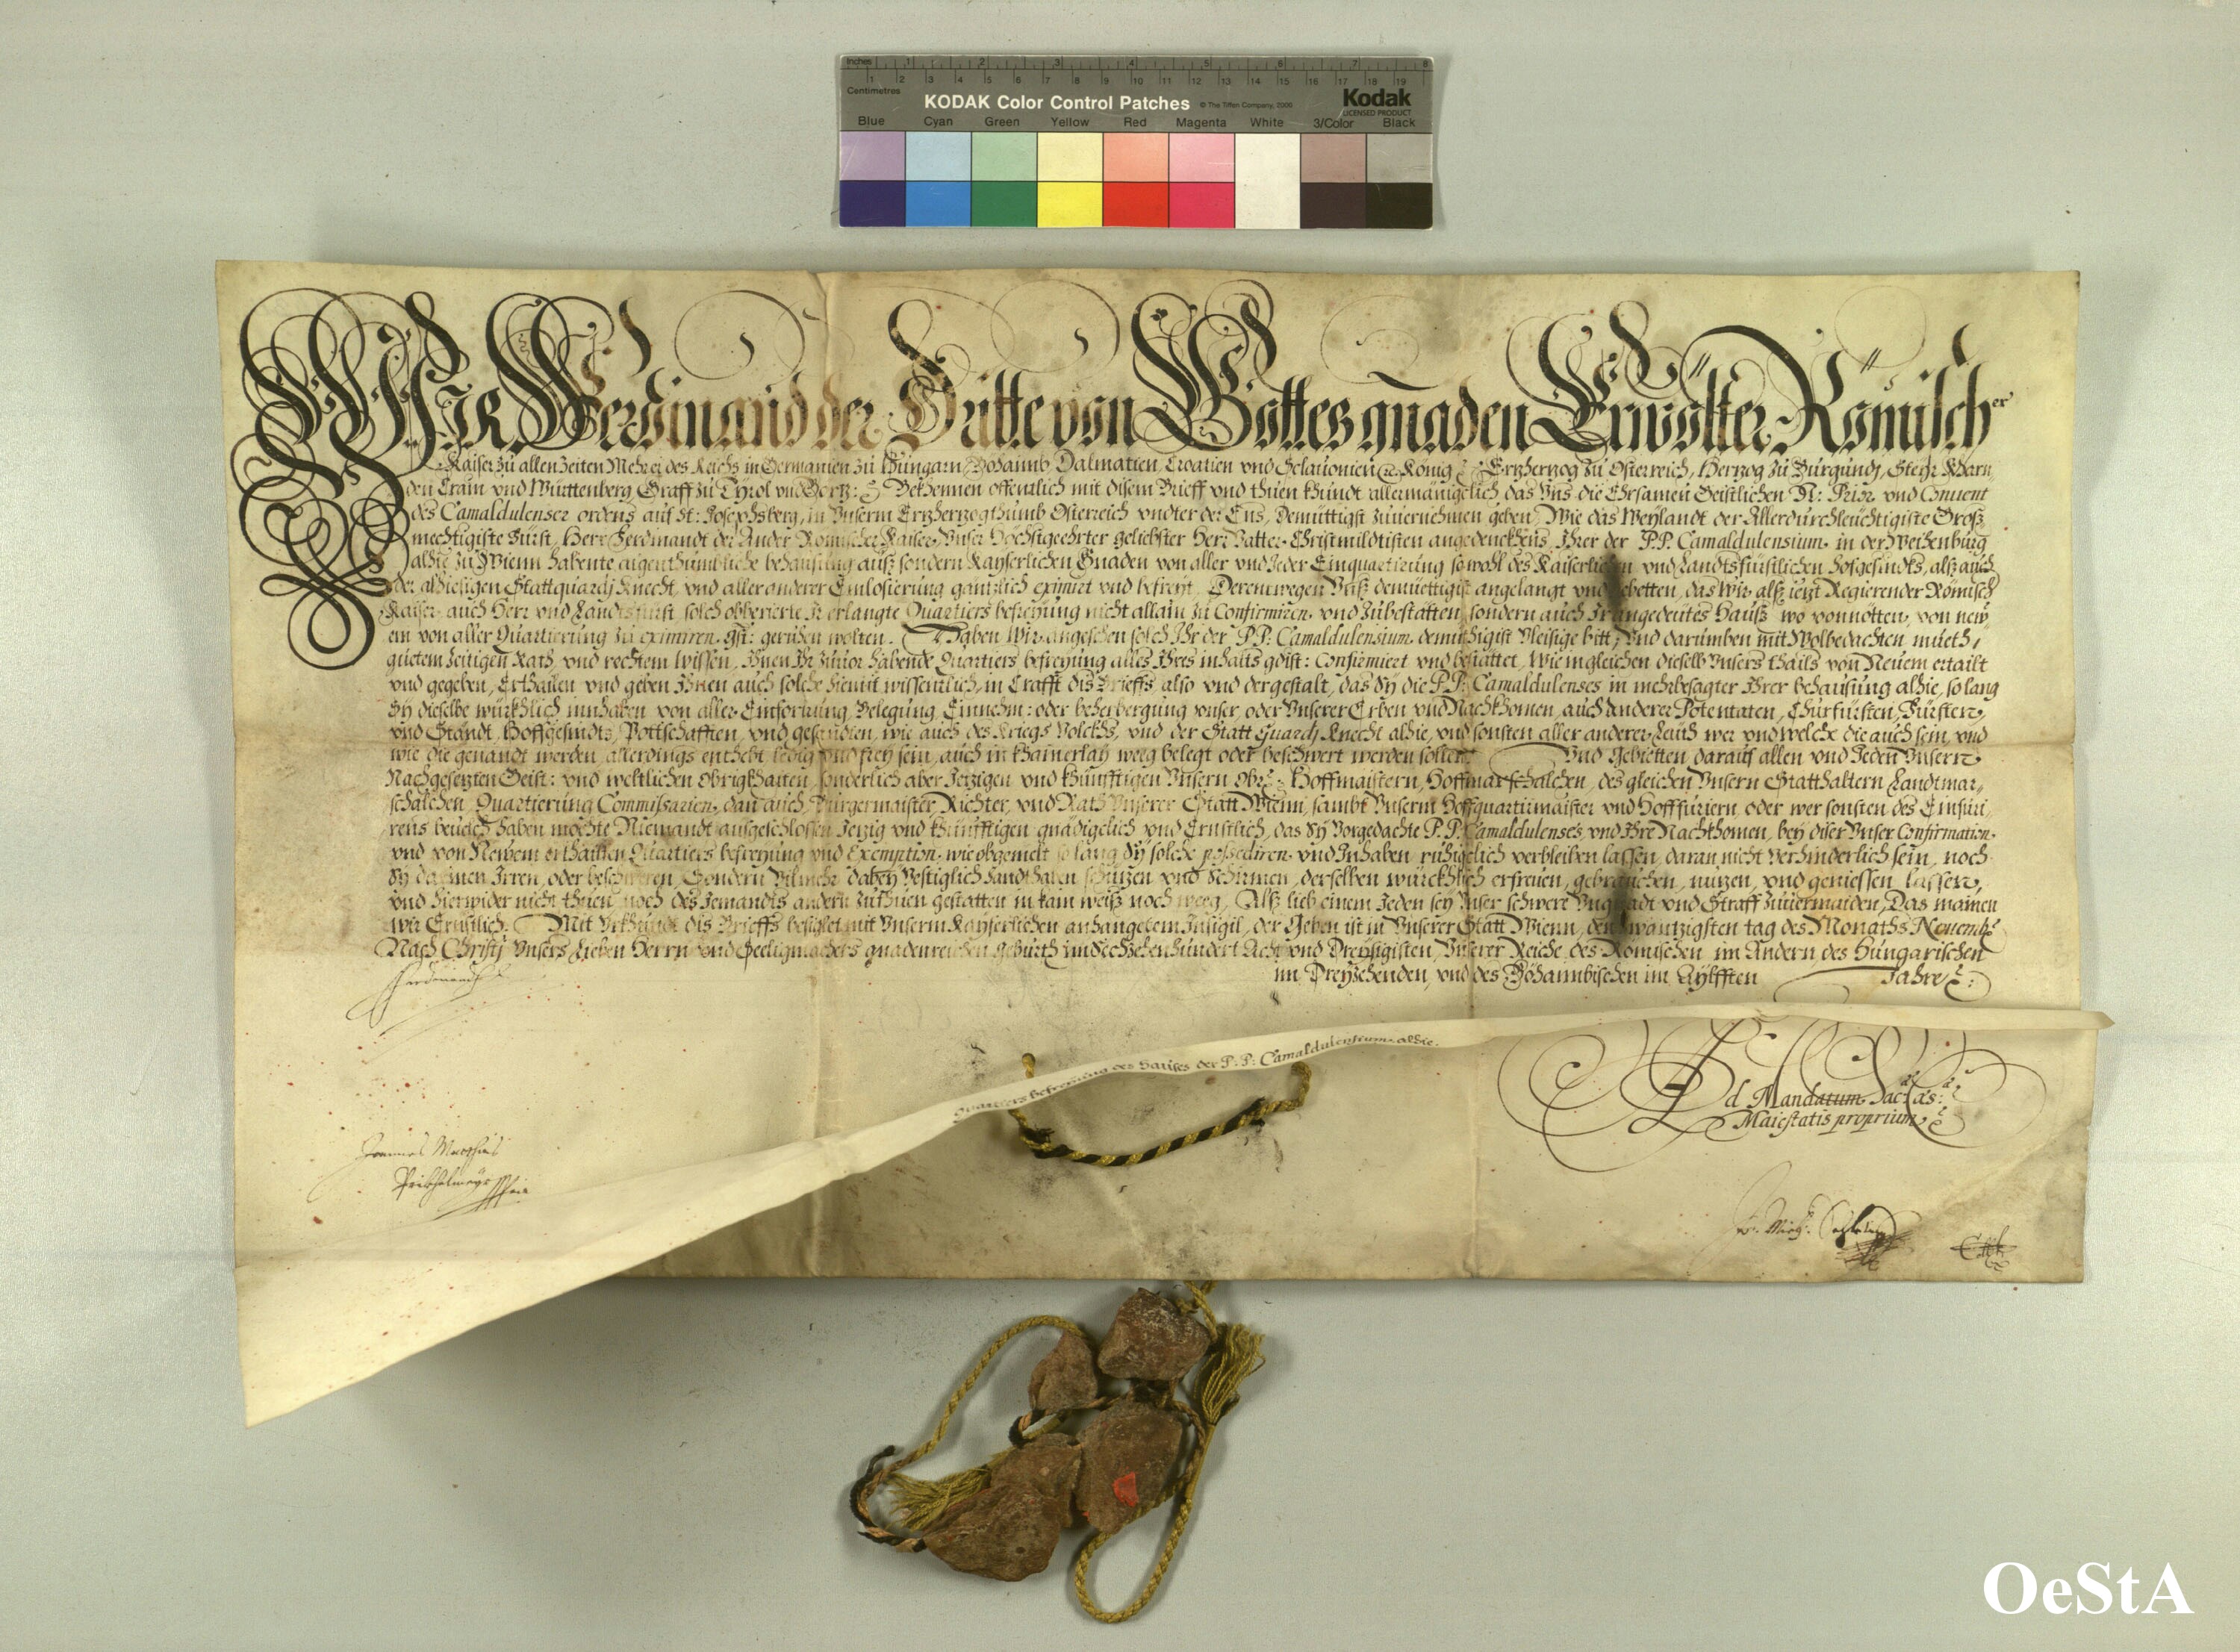 Inches 1 2 3 4 5 6 7 8
1 2 3 4 5 6 7 8 9 10 11 12 13 14 15 16 17 18 19
Centimetres
KODAK Color Control Patches © The Tiffen Company, 2000 Kodak
LICENSED PRODUCT
Blue Cyan Green Yellow Red Magenta White 3/Color Black
WIR Ferdinannd der Dritte von Gottes gnaden Erwölter Römischer
Kaiser zu allen Zeiten Mehrer des Reichs in Germanien zu Hungarn, Böhaimb, Dalmatien, Croatien vnd Sclauonien König Ertzherzog zu Österreich, Hertzog zu Burgundj, Steyr, Kharn,
den Crain vnd Württenberg Graff zu Tyrol vnd Görtz: Bekhennen offentlich mit disem Brieff vnd thuen khundt allermänigelich, das Vns die Ehrsamen Geistlichen N: Prior vnd Conuent
des Camaldulenser ordens auf St: Josephsberg, in Vnserm Ertzherzogthumb Österreich vndter der Ens, Demüttigst zuuernehmen geben, Wie das Weylandt der Allerdurchleüchtigiste Groß,
mechtigiste Fürst, Herr Ferdinandt der Ander Römischer Kaiser Vnser Hochstgeehrter geliebster Herr Vatter Christmildtisten angedenckhens, Ihrer der P.P. Camaldulensium in der Weihenburg
alhie zu Wienn habente aigenthumbliche behausung auß sondern Kayserlichen Gnaden von aller vnd Jeder Einquartierung sowohl des Kaiserlichen vnd Landtsfürstlichen hofgesindts, alß auch
der alhieigen Stattquardj Knecht, vnd aller anderer Einlosierung gäntzlich eximirt vnd befreyt, Derentwegen Vnß demüettigist angelangt vnd gebetten, das Wir alß ietzt Regierender Römisch
Kaiser auch Herr vnd Landtsfürst solch obberierte Ir erlangte Quartiers befreyung nicht allain zu Confirmiren vnd zubestätten, sondern auch Ir angedeütes Hauß wo vonnötten, von new,
em von aller Quartierung zu eximiren gst: geruhen wolten. Haben Wir angesehen solch Ihr der P.P: Camaldulensium demüthigist vleisige bitt, Vnd darumben mit Wolbedachten mueth,
guetem zeitigen Rath, vnd rechtem Wissen, Ihnen Ihr zuuor habende Quartiers befreyung alles Ihres inhalts gdist: Confirmiert vnd bestättet, Wie ingleichen dieselb Vnsers thails von Neuem ertailt
vnd gegeben, Erthailen vnd geben Ihnen auch solche hiemit wissentlich, in Crafft dis Brieffs, also vnd dergestalt, das Sÿ die P.P: Camaldulenses in mehrbesagter Ihrer behausung alhie, so lang
Sÿ dieselbe würkhlich innhaben von aller Einforirung, Belegung, Einnehm: oder beherbergung vnser, oder Vnserer Erben vnd Nachkhomen, auch anderer Potentaten, Churfürsten, Fürsten,
vnd Ständt, Hoffgesindts, Pottschafften, vnd gesandten, wie auch des Kriegs Volckhs, vnd der Statt Guardj Knecht alhie, vnd sonsten aller anderer Leüth wer vnd welche die auch sein, vnd
wie die genandt werden, allerdings enthebt, ledig vnd frey sein, auch in khainerlay weeg belegt oder beschwert werden sollen. Vnd Gebietten darauf allen vnd Jeden Vnsern
Nachgesetzten Geist: vnd weltlichen Obrigkhaiten, sonderlich aber Jetzigen vnd khünfftigen Vnsern Obr: Hoffmaistern, Hoffmarschalchen, des gleichen Vnsern Statthaltern Landtmar,
schalchen, Quartierung Commissarien, dan auch, Burgermaister, Richter, vnd Rath Vnserer Statt Wienn, sambt Vnserm Hoffquartirmaister vnd Hoffuriern, oder wer sonsten des Einfuri,
rens beuelch haben möchte Niemandt außgeschlossen Jetzig vnd khünfftigen gnädigelich vnd Ernstlich, das Sÿ Vorgedachte P.P. Camaldulenses vnd Ihre Nachkhomen, bey diser Vnser Confirmation
vnd von Newem erthailten Quartiers befreyung vnd Exemption, wie obgemelt so lang Sÿ solche possediren vnd Inhaben ruhigelich verbleiben lassen, daran nicht verhinderlich sein, noch
Sÿ darinnen Irren, oder beschweren, Sondern Vilmehr dabey Vestiglich handthaben schützen vnd Schirmen, derselben würckhlich erfreuen, gebrauchen, nutzen, vnd geniessen lassen,
vnd hierwider nicht thuen noch des Jemandts andern zuthuen gestatten in kain weiß noch weeg, Alß lieb einem Jeden sey Vnser schwere Vngnadt vnd Straff zuuermaiden, Das mainen
wir Ernstlich. Mit Vrkhundt dis Brieffs besiglet mit Vnserm Kayserlichen anhangetem Insigil, der Geben ist in Vnserer Statt Wienn, den zwaintzigsten tag des Monaths Nouemb:
Nach Christj Vnsers Lieben Herrn vnd Seeligmachers gnadenreichen geburth im Sechzehenhundert Acht vnd Dreyßigisten, Vnserer Reiche des Römischen im Andern, des Hungarischen
im Dreyzehenden, vnd des Böhaimbischen im Aylfften Jahre:
Ferdinandt
Quartiers befreyung des Hauses der P:P: Camaldulensium alhie.
Ad Mandatum Sac: Cæs:
Maiestatis proprium
Joannes Matthias
OeStA